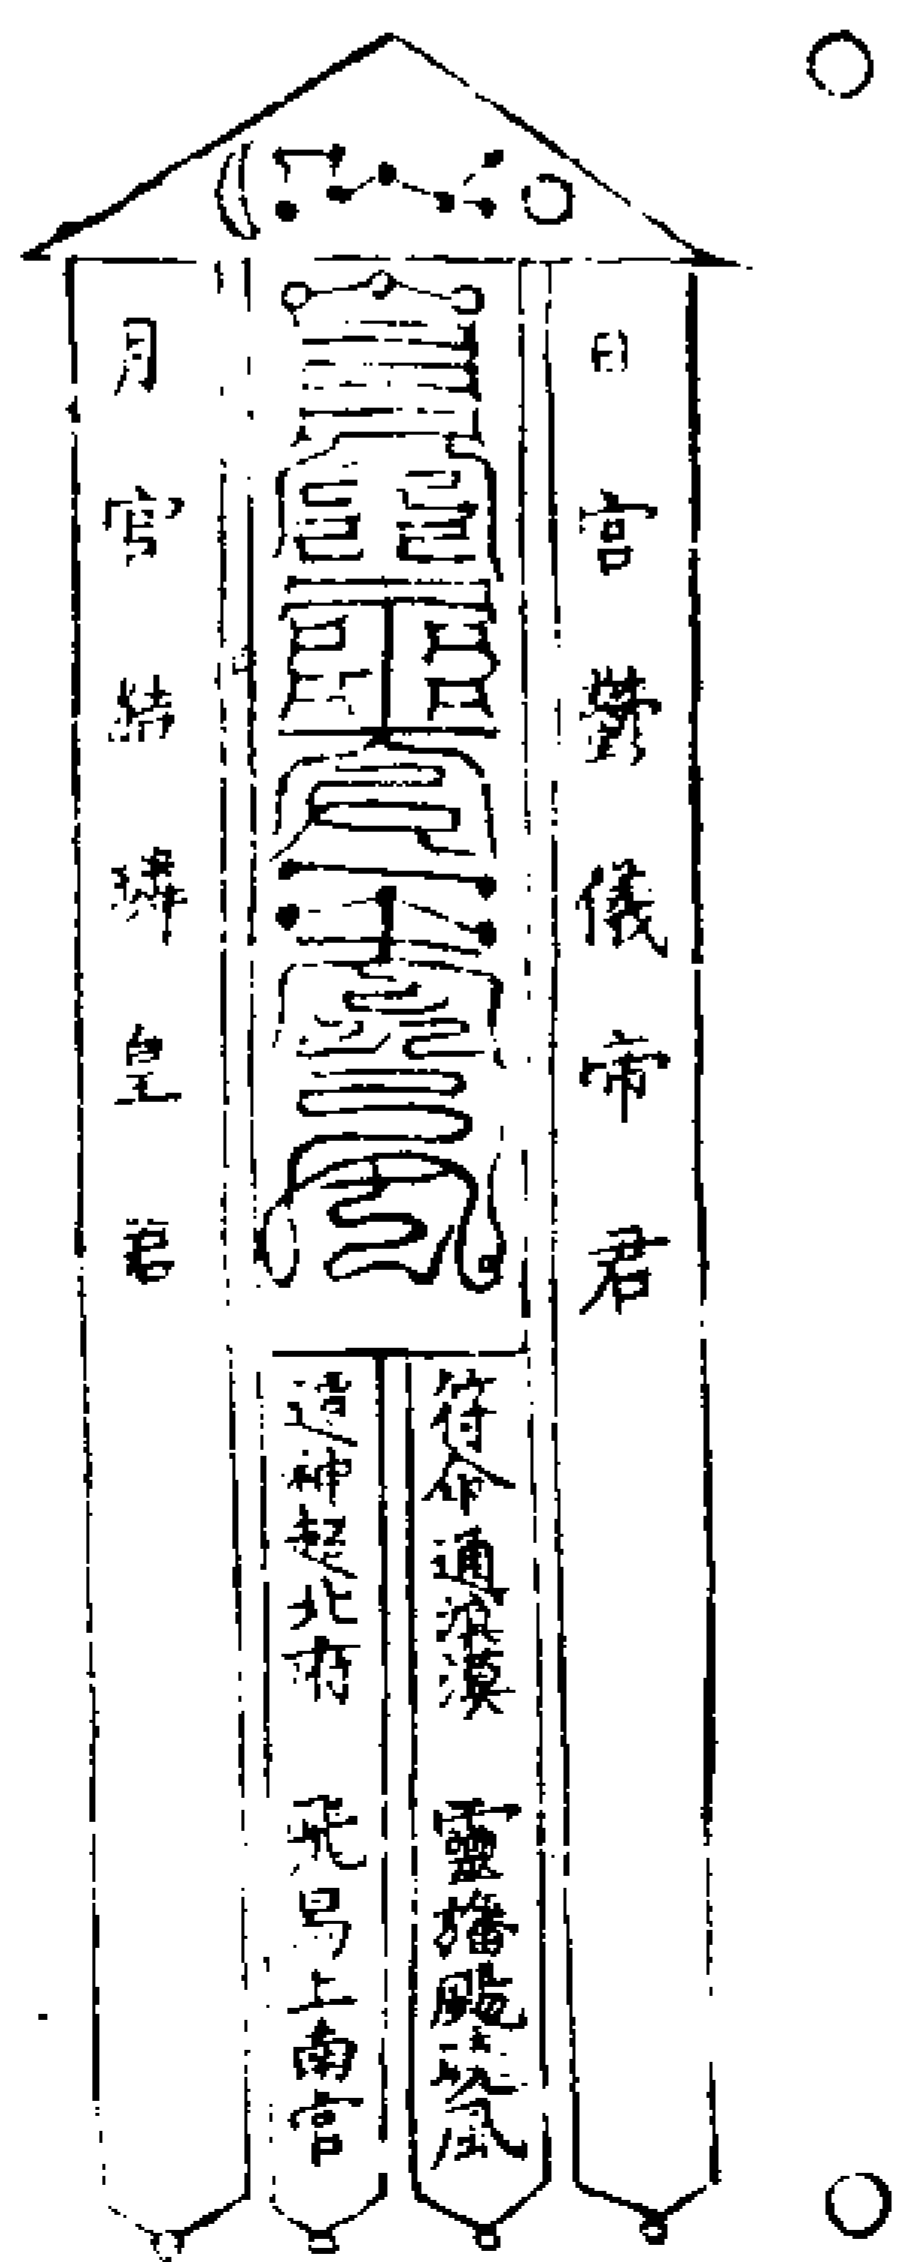 日宮欝儀帝君
符命通溟漠 靈旛颺風
北府 飛上南宮
月宮結璘皇君